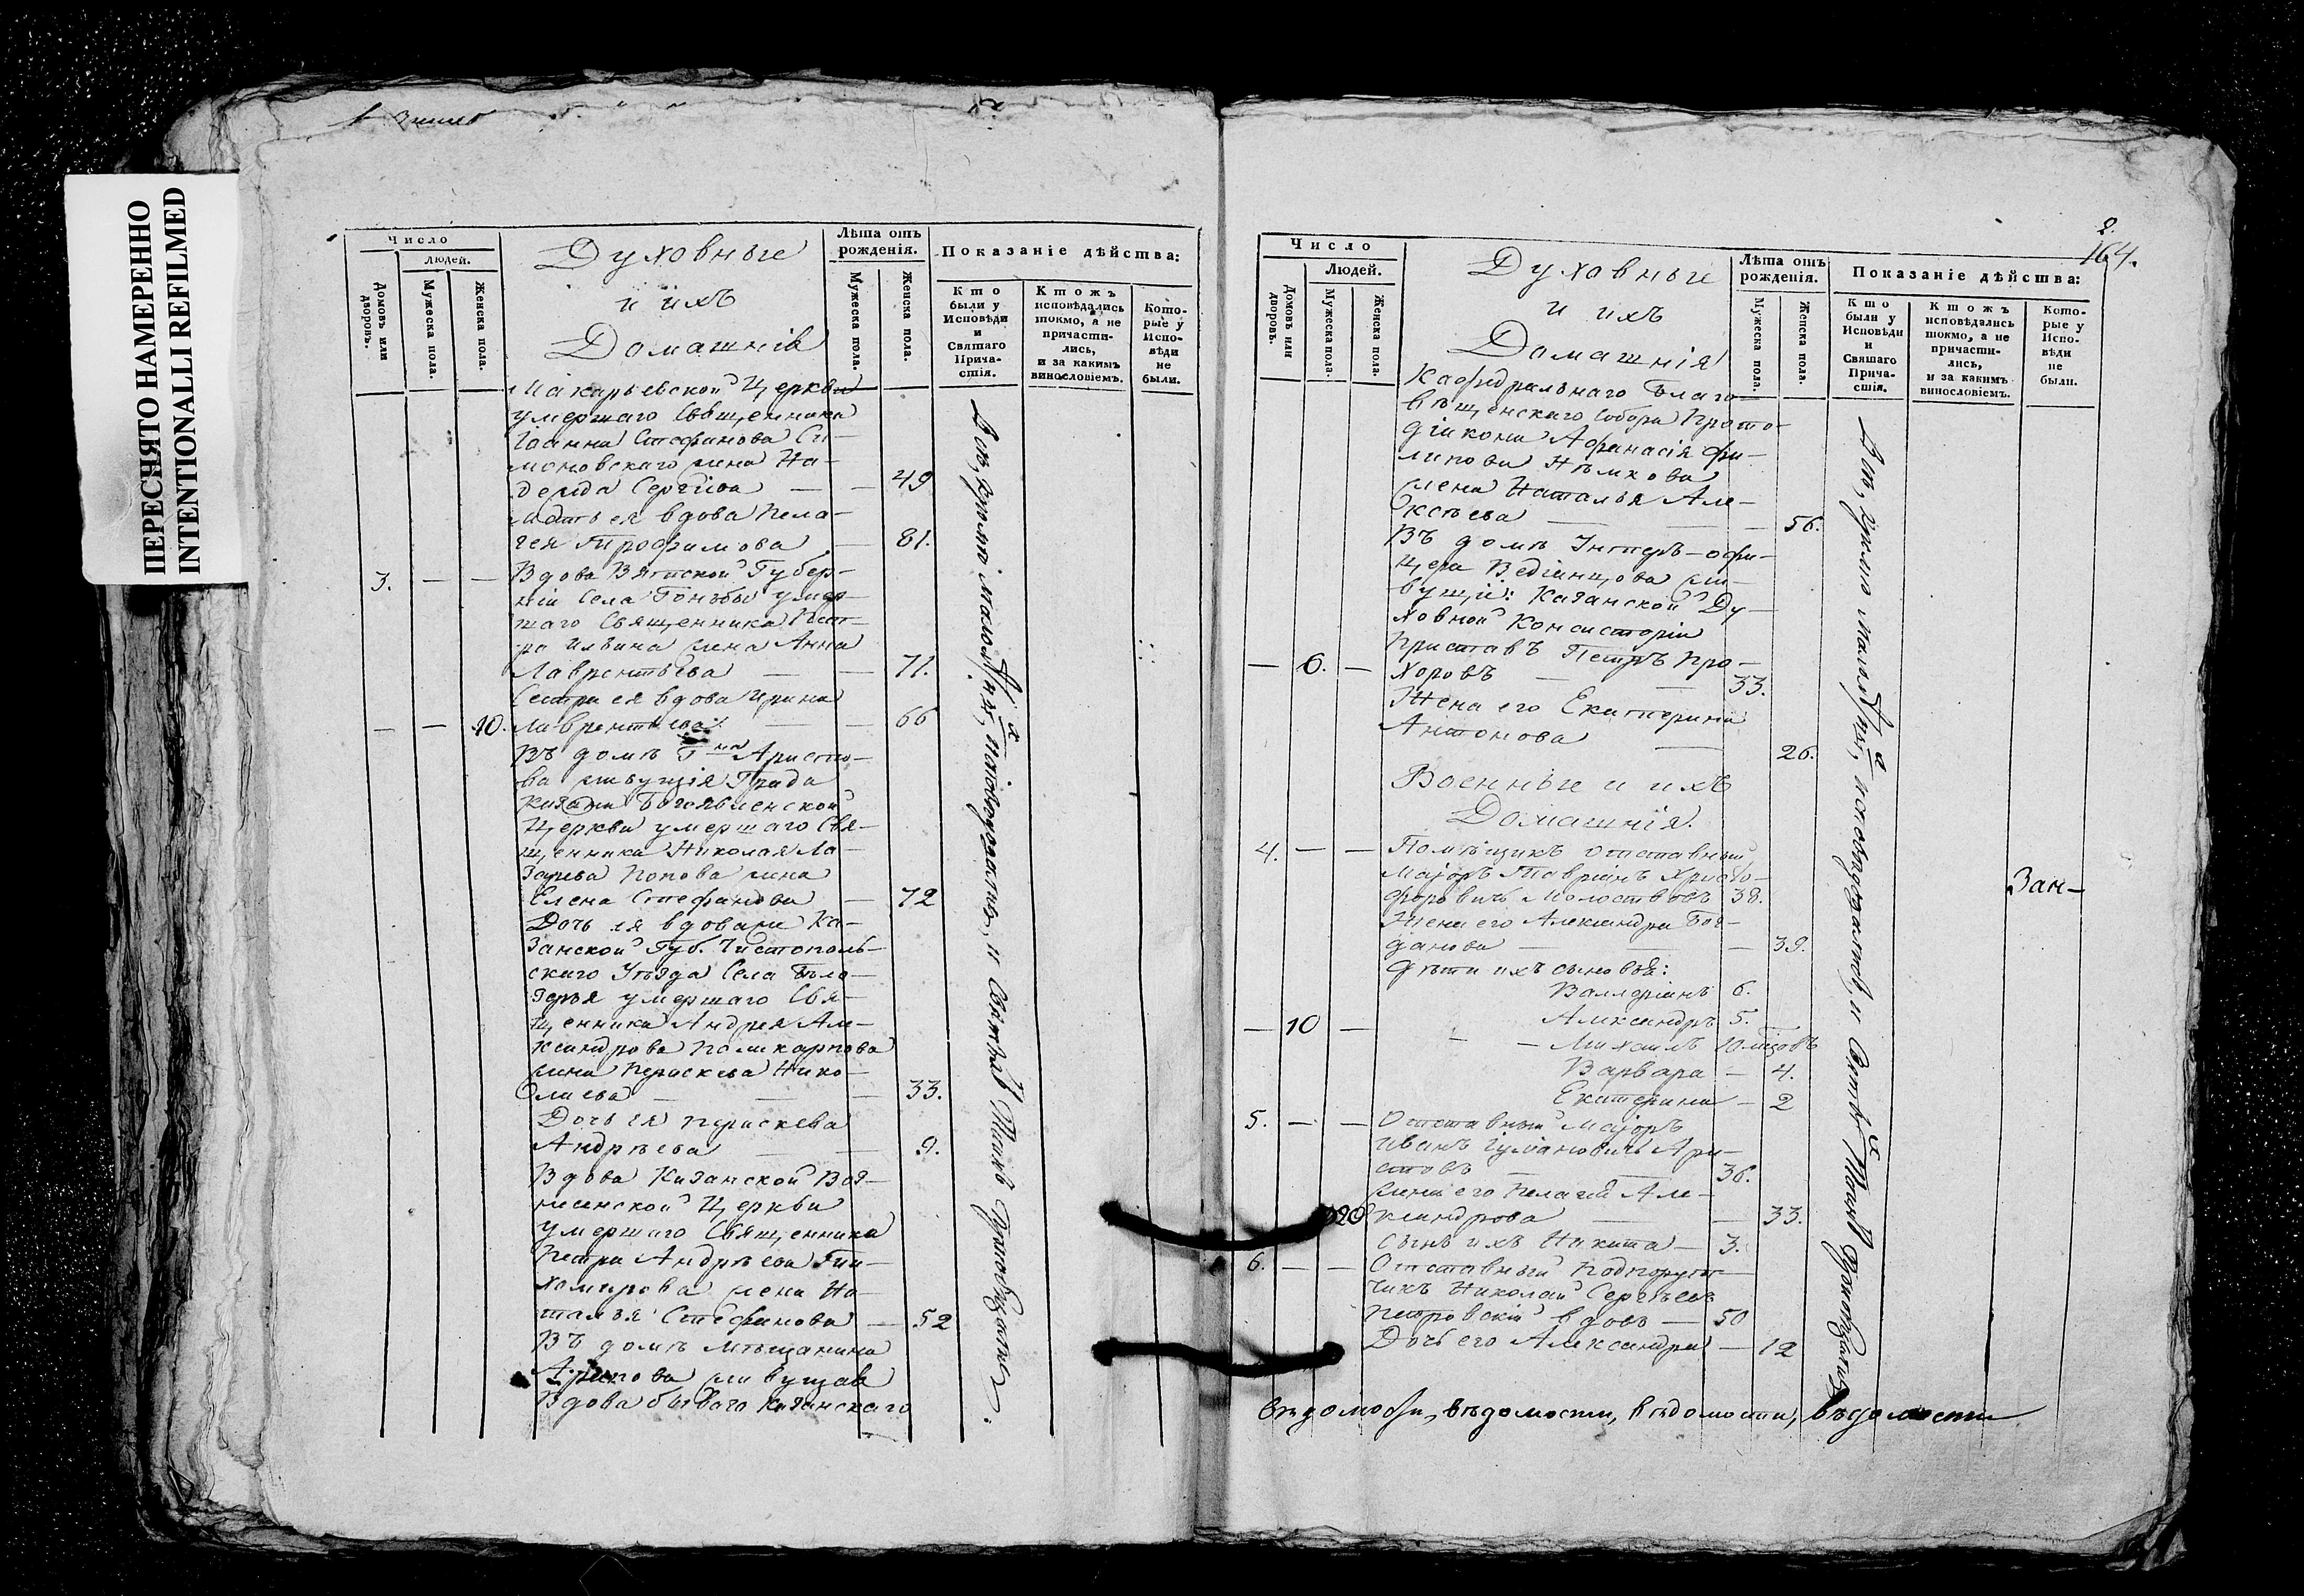 ПЕРЕСНЯТО НАМЕРЕННО
INTENTIONALLI REFILMED
Число
Людей.
Домовъ или дворовъ.
Мужеска пола.
Женска пола.
Духовные
и ихъ
Домашнія
Лѣта отъ рожденія.
Мужеска пола.
Женска пола.
Показаніе дѣйства:
Кто были у Исповѣди и Святаго Причастія.
Ктожъ исповѣдались токмо, а не причастились, и за какимъ винословіемъ.
Которые у Исповѣди не были.
Макарьевской Церкви
умершаго Священника
Іоанна Стефанова Си-
моновскаго жена На-
дежда Сергіева — — 49
Мать ея вдова Пела-
гея Трофимова — 81.
3. — — Вдова Вятской Губер-
ніи Села Гоньбы умер-
шаго Священника Пет-
ра Ильина жена Анна
Лаврентьева — — 71.
Сестра ея вдова Ирина
— — 10. Лаврентьева — — 66
Въ домѣ Г-на Аристо-
ва живущія Града
Казани Богоявленской
Церкви умершаго Свя-
щенника Николая Ла-
зарева Попова жена
Елена Стефанова — 72
Дочь ея вдовая Ка-
занской Губ. Чистополь-
скаго Уѣзда Села Бѣло-
зерья умершаго Свя-
щенника Андрея Але-
ксандрова Поликарпова
жена Параскева Нико-
лаева — — — 33.
Дочь ея Параскева
Андрѣева — — 9.
Вдова Казанской Воз-
несенской Церкви
умершаго Священника
Петра Андрѣева Ти-
хомирова жена На-
талья Стефанова — 52
Въ домѣ мѣщанина
живущая
Вдова бывшаго Казанскаго
2.
164.
Число
Людей.
Домовъ или дворовъ.
Мужеска пола.
Женска пола.
Духовные
и ихъ
Домашнія
Лѣта отъ рожденія.
Мужеска пола.
Женска пола.
Показаніе дѣйства:
Кто были у Исповѣди и Святаго Причастія.
Ктожъ исповѣдались токмо, а не причастились, и за какимъ винословіемъ.
Которые у Исповѣди не были.
Кафедральнаго Благо-
вѣщенскаго Собора Прото-
діакона Афанасія Фи-
липова
жена Наталья Але-
ксѣева — — — 56.
Въ домѣ Унтеръ-офи-
цера жи-
вущій: Казанской Ду-
ховной Консисторіи
Приставъ Петръ Про-
— 6. — хоровъ — — 33.
Жена его Екатерина
Антонова — 26.
Военные и ихъ
Домашнія.
4. — — Помѣщикъ отставный
Маіоръ Христо-
форовичъ Молоствовъ 38.
Жена его Александра Бог-
данова — — 39.
Дѣти ихъ сыновья:
Валеріанъ 6.
— 10 — Александръ 5.
Михаилъ 10 мѣсяцовъ
Варвара — 4.
Екатерина — 2
5. — — Отставный Маіоръ
Иванъ Ари-
стовъ — 36.
жена его Пелагея Але-
20 ксандрова — — 33.
Сынъ ихъ Никита — 3.
6. — — Отставный Подпоруч-
чикъ Николай Сергѣевъ
Петровскій вдовъ — 50
Дочь его Александра — 12
вѣдомости, вѣдомости, вѣдомости, вѣдомости